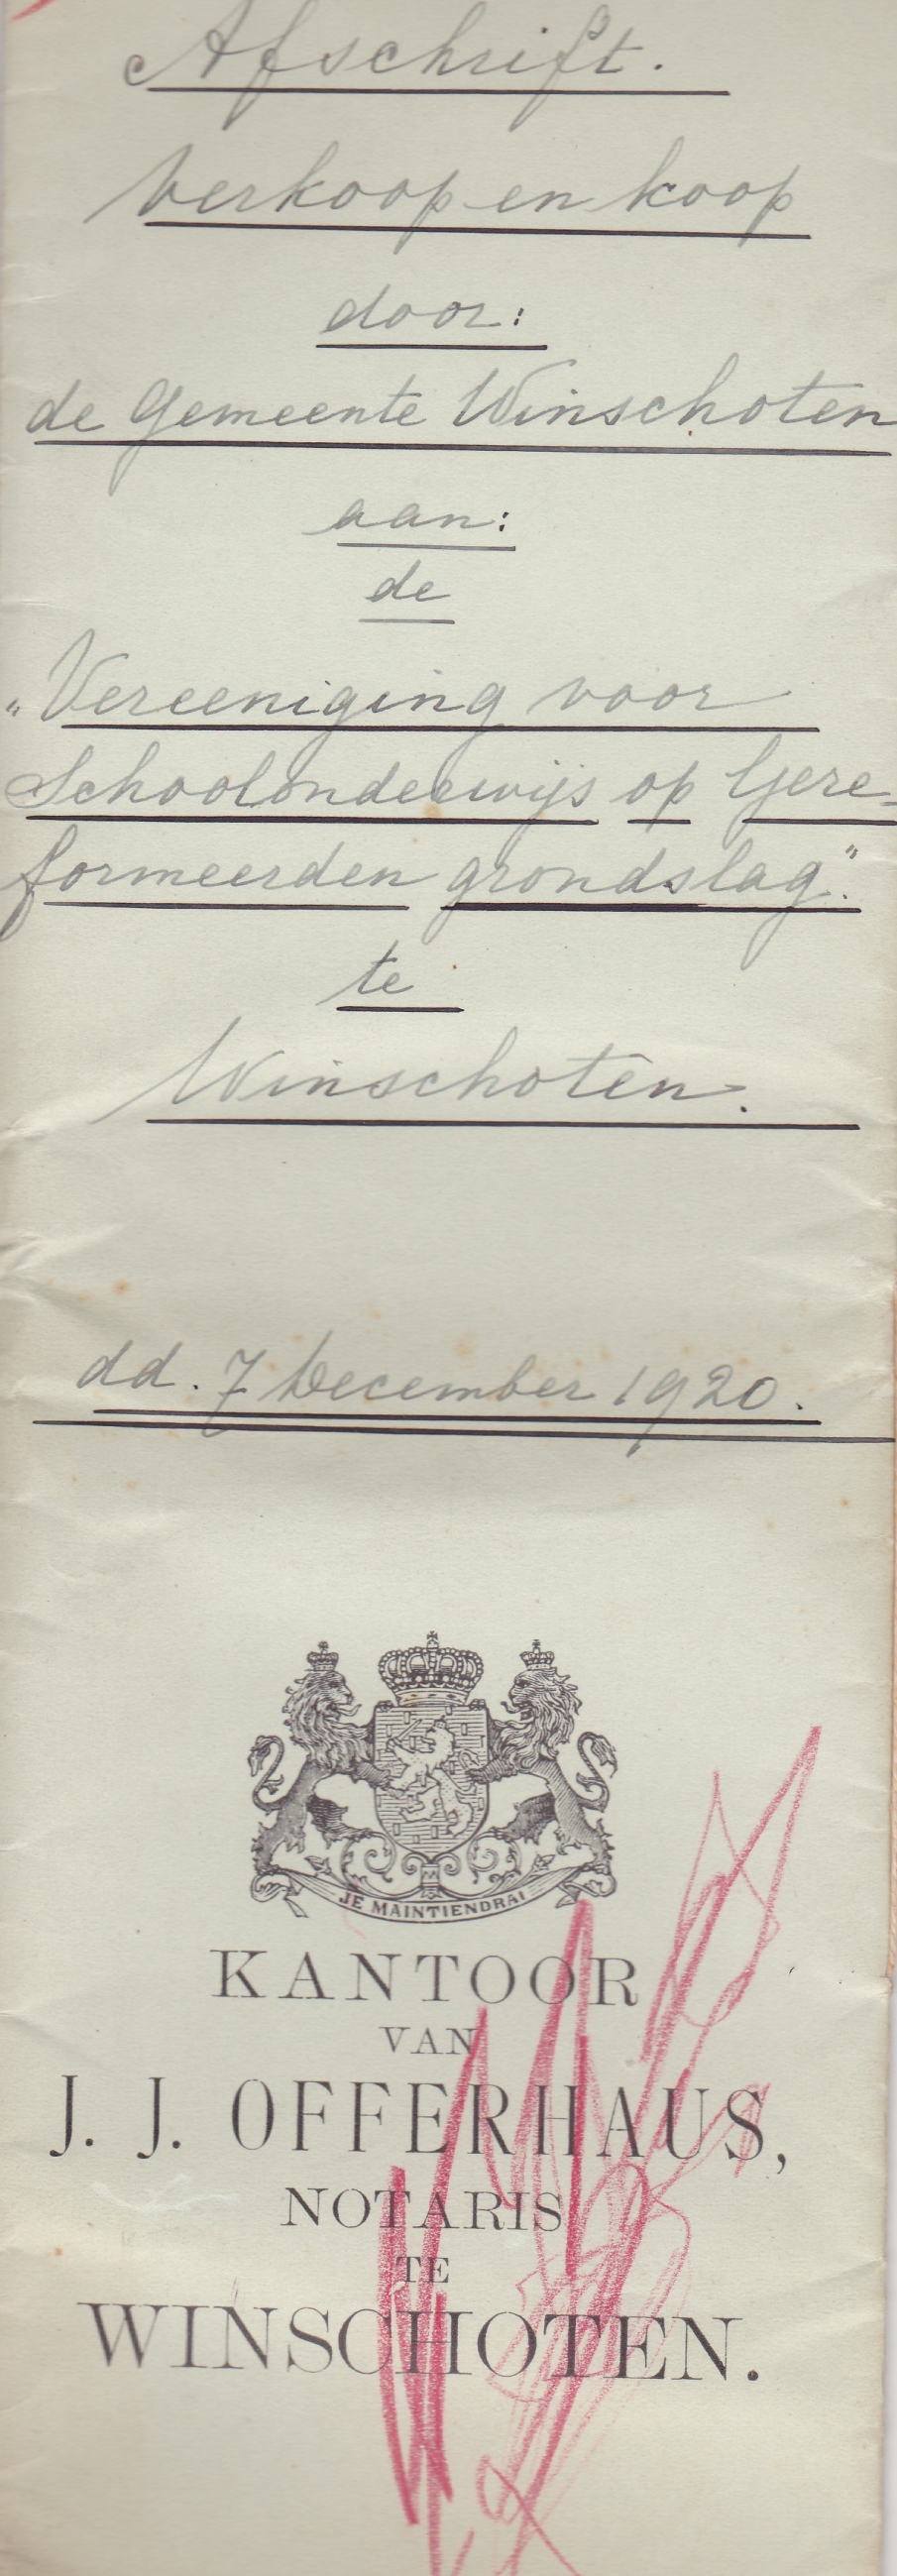 Afschrift.
Verkoop en koop
door:
de Gemeente Winschoten
aan:
de
„Vereeniging voor
Schoolonderwijs op Gere-
formeerden grondslag".
te
Winschoten.
dd. 7 December 1920.
JE MAINTIENDRAI
KANTOOR
VAN
J. J. OFFERHAUS,
NOTARIS
TE
WINSCHOTEN.